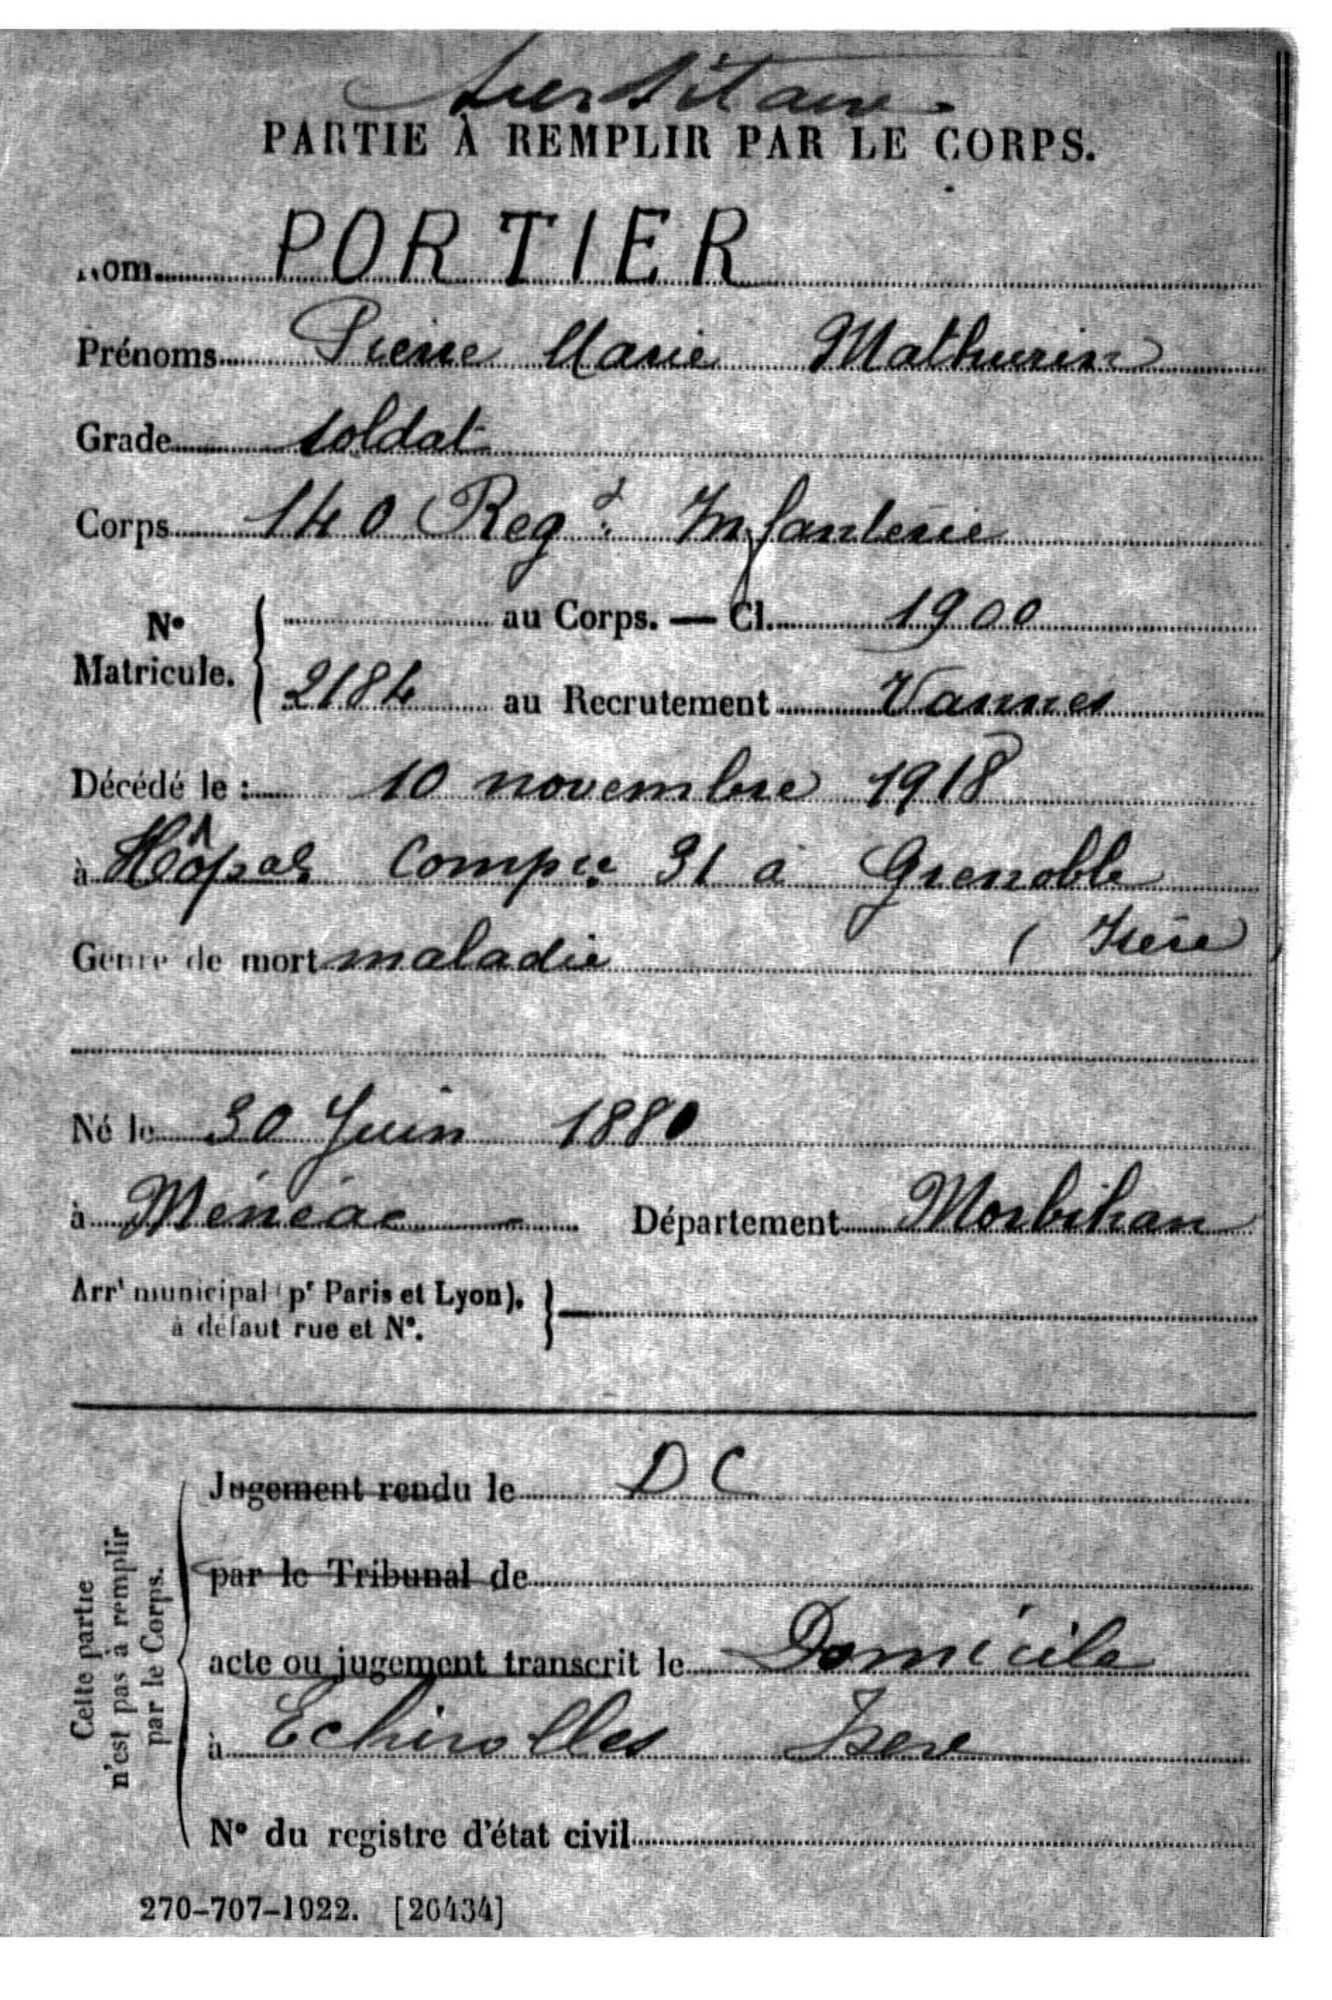 Sursitaire
PARTIE À REMPLIR PAR LE CORPS.
Nom PORTIER
Prénoms Pierre Marie Mathurin
Grade soldat
Corps 140 Reg.t Infanterie
N° Matricule. { au Corps. — Cl. 1900
2184 au Recrutement Vannes
Décédé le : 10 novembre 1918
à Hôpal Compre 31 à Grenoble
(Isère)
Genre de mort maladie
Né le 30 Juin 1880
à Ménéac Département Morbihan
Arrt municipal (pr Paris et Lyon),
à défaut rue et N°. }
Cette partie
n'est pas à remplir
par le Corps.
Jugement rendu le D C
par le Tribunal de
acte ou jugement transcrit le Domicile
à Echirolles Isere
N° du registre d'état civil
270-707-1922. [26434]